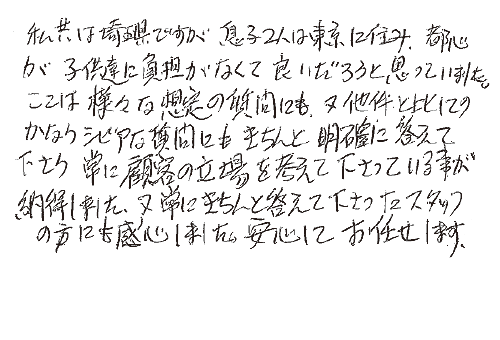 私共は埼玉県ですが 息子2人は東京に住み、都心
が子供達に負担がなくて良いだろうと思っていました。
ここは様々な想定の質問にも、又他件とよとしての
かなりシビアな質問にもきちんと明確に答えて
下さり 常に顧客の立場を考えて下さっている事が
納得しました、又常にきちんと答えて下さったスタッフ
の方にも感心しました。安心してお任せします。